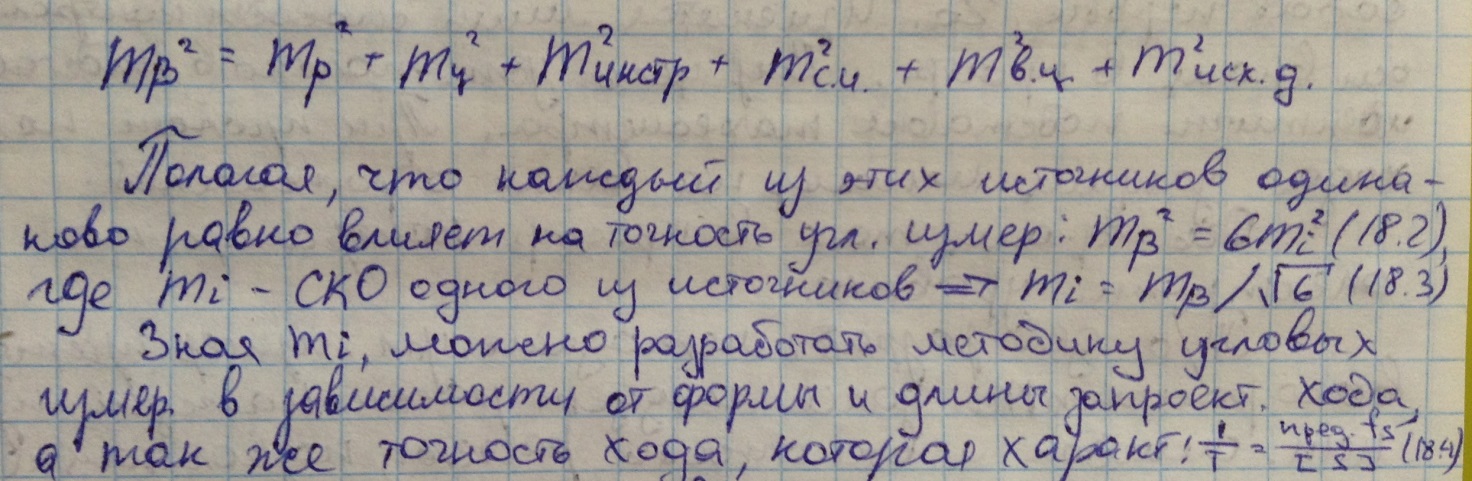 mβ² = mр² + mц² + m²инстр + m²с.и. + m²в.ц + m²исх.д.
Полагая, что каждый из этих источников одина-
ково равно влияет на точность угл. измер: mβ² = 6mi² (18.2),
где mi - СКО одного из источников => mi = mβ/√6 (18.3)
Зная mi, можно разработать методику угловых
измер. в зависимости от формы и длины запроект. хода,
а так же точность хода, которая характ: 1/T = пред. fs / [S] (18.4)